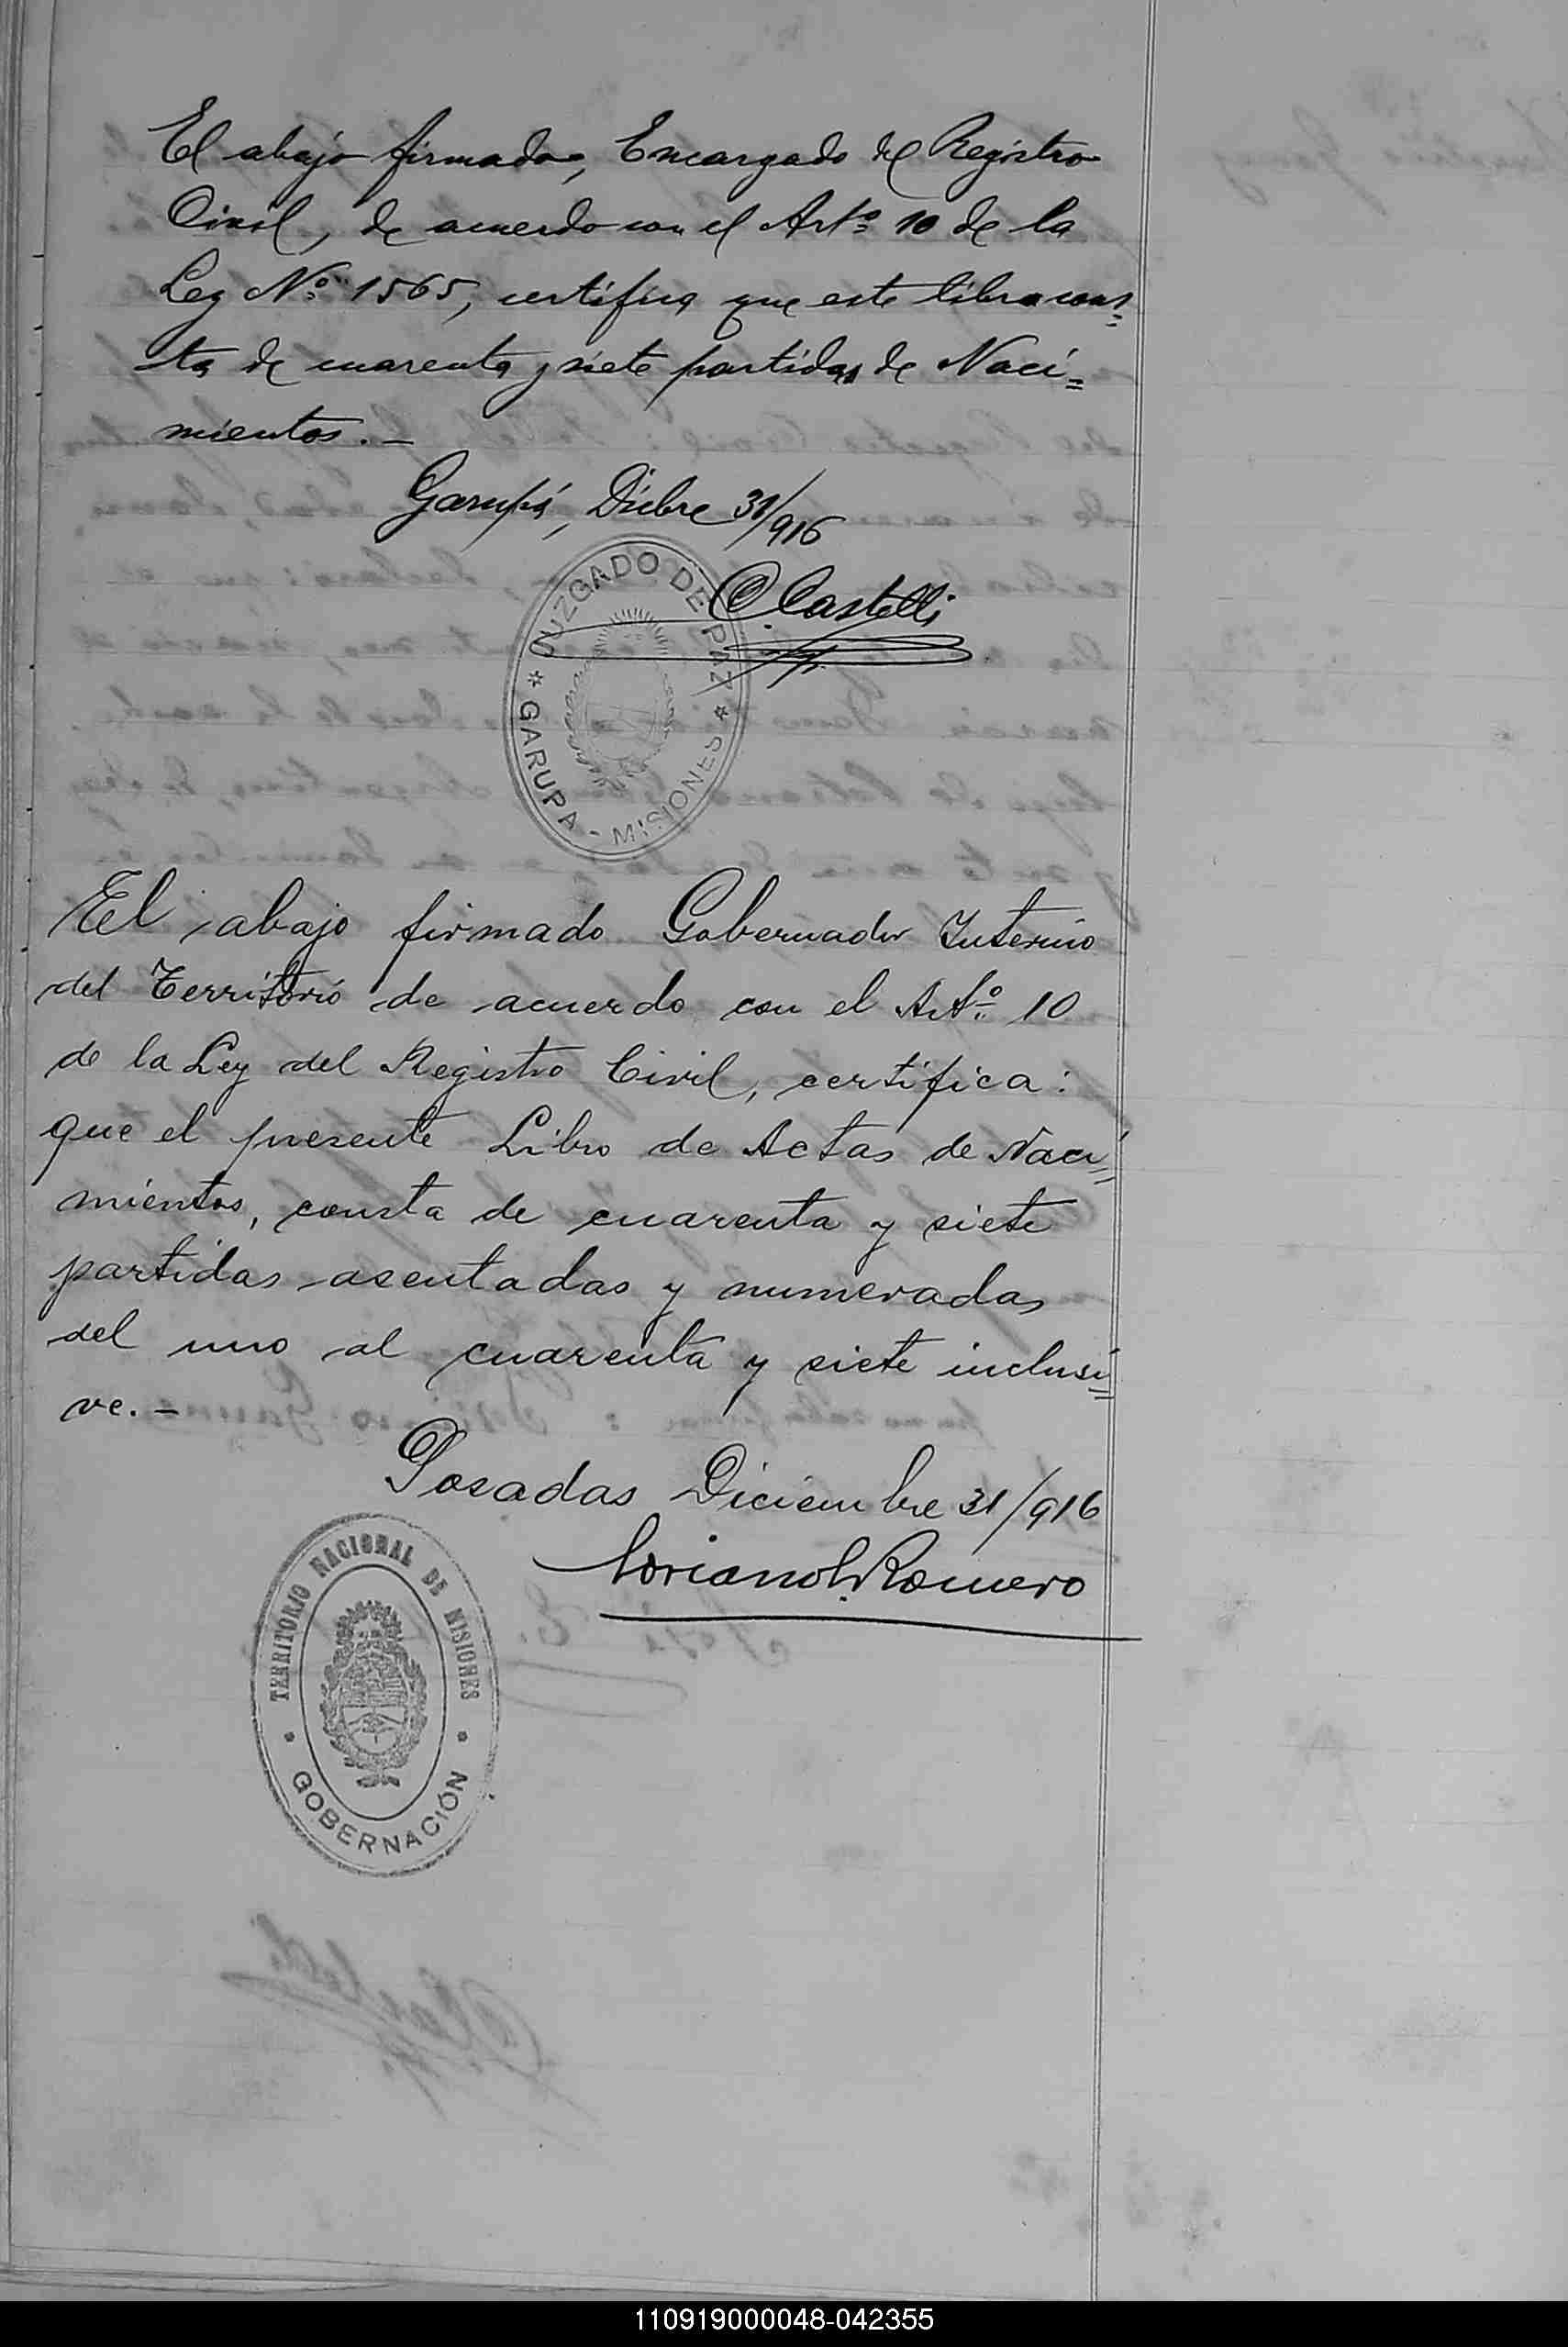 El abajo firmado, Encargado del Registro
Civil, de acuerdo con el Artº 10 de la
Ley Nº 1565, certifica que este libro cons=
ta de cuarenta y siete partidas de Naci=
mientos.-
Garupá, Dicbre 31/916
C. Castelli
JUZGADO DE PAZ
* GARUPA - MISIONES *
El abajo firmado Gobernador Interino
del Territorio de acuerdo con el Artº 10
de la Ley del Registro Civil, certifica:
que el presente Libro de Actas de Naci=
mientos, consta de cuarenta y siete
partidas asentadas y numeradas
del uno al cuarenta y siete inclusi=
ve.-
Posadas Diciembre 31/916
Romero
TERRITORIO NACIONAL DE MISIONES
* GOBERNACIÓN *
110919000048-042355